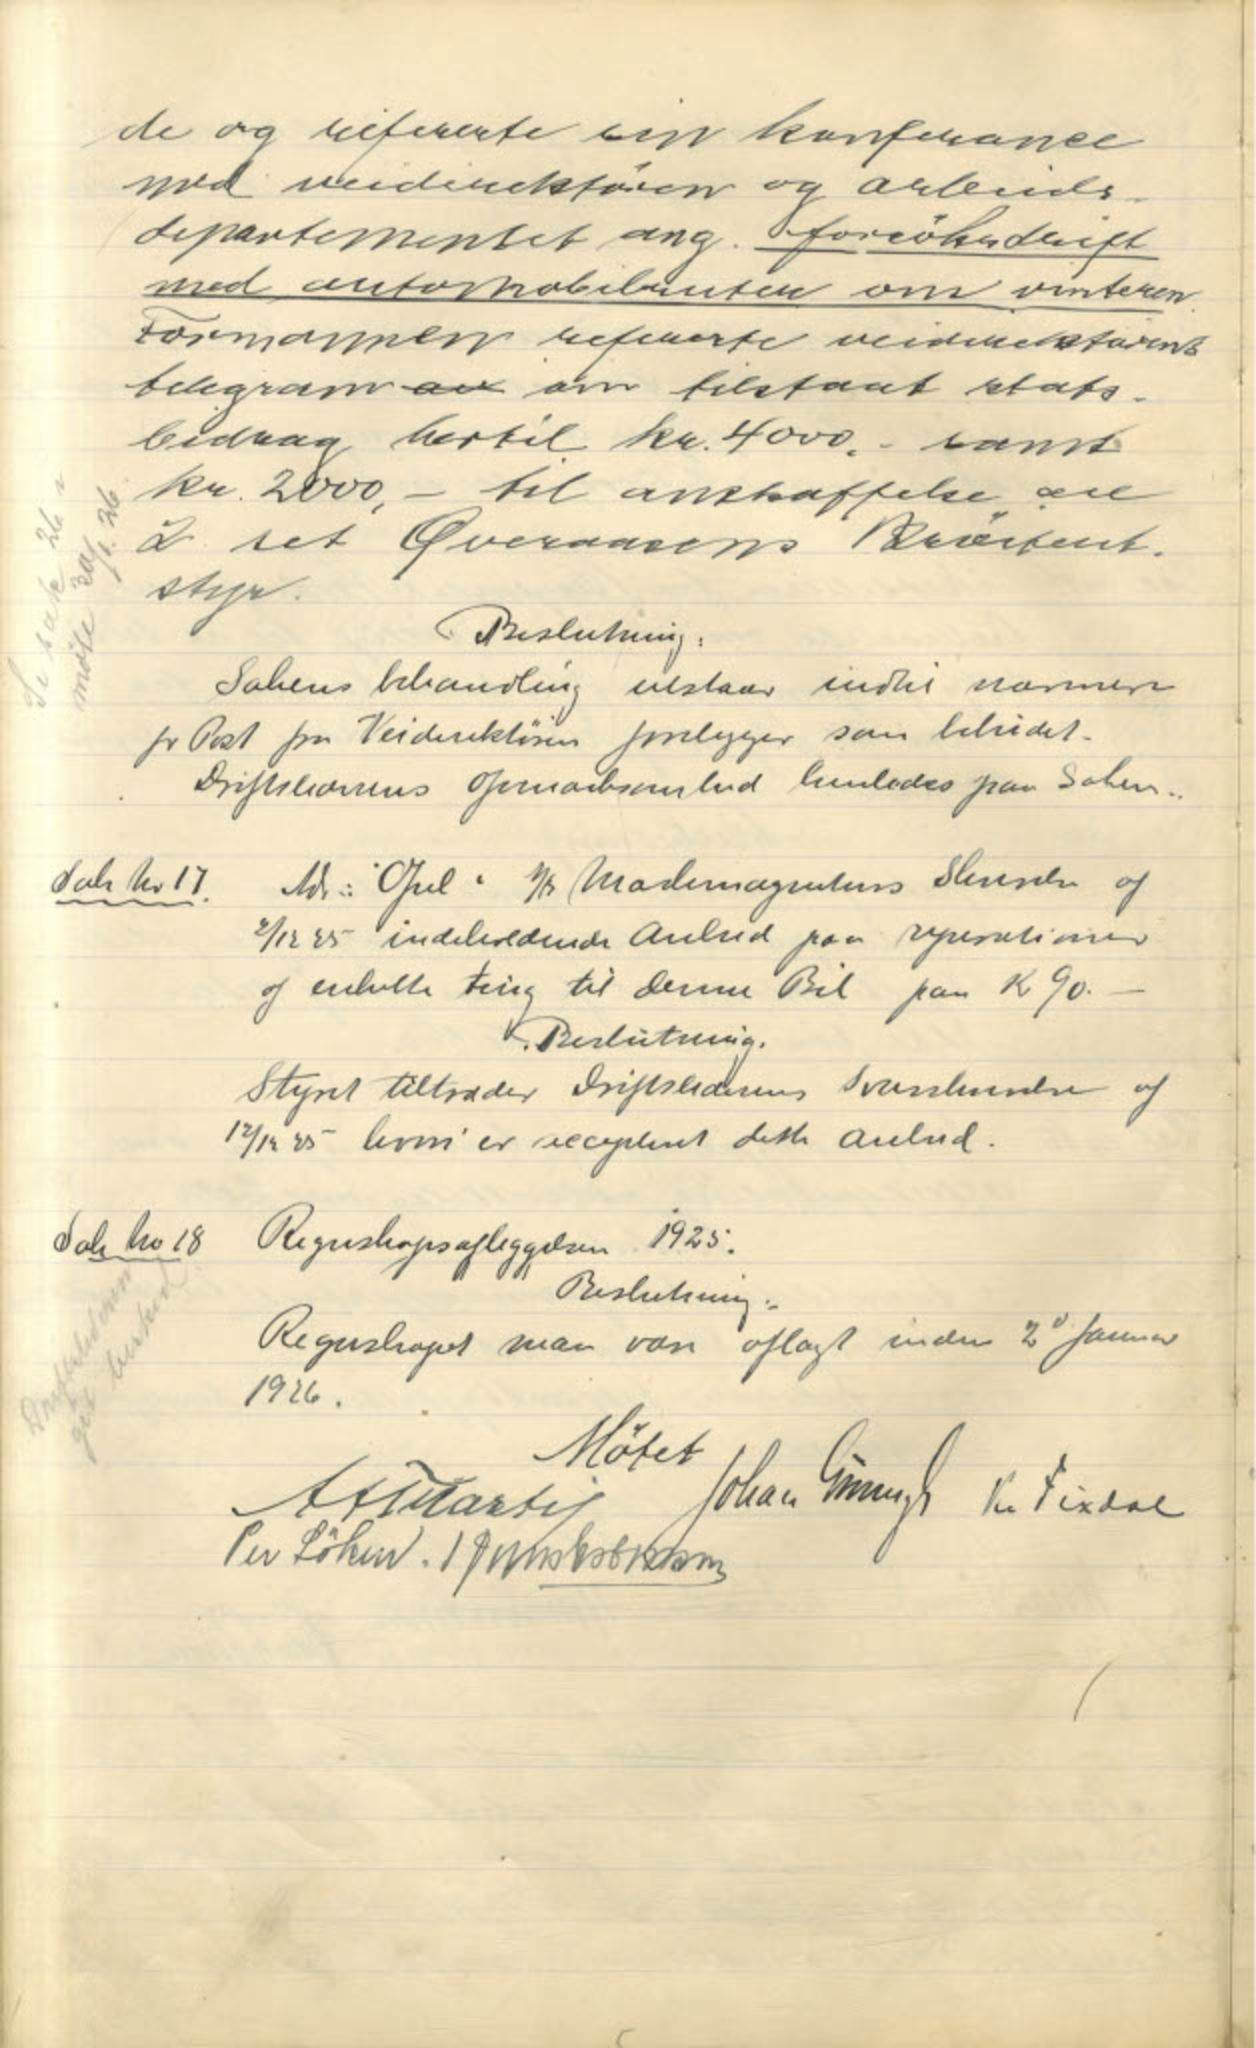 de og refererte sin konferance
med veidirektören og arbeids-
departementet ang. forsöksdrift
med automobilruter om vinteren.
Formannen refererte veidirektörens
telegram av om tilstaat stats-
bidrag hertil kr. 4000,- samt
kr. 2000,- til anskaffelse av
2 set Øveraasens Bröiteut-
styr.
Se sak 26 i
möte 20/1. 26.
Beslutning:
Sakens behandling utstaar indtil nærmere
pr Post fra Veidirektören foreligger som bebudet.
Driftslederens Opmerksomhed henledes paa Saken.
Sak No 17. Ad: "Opel" Skrivelse af
2/12 25 indeholdende Anbud paa reperationer
af enkelte ting til denne Bil paa Kr 90.—
Beslutning.
Styret tiltræder Driftslederens Svarskrivelse af
12/12 25 hvori er accepteret dette Anbud.
Sak No 18 Regnskapsafleggelsen 1925.
Beslutning:
Regnskapet maa være aflagt inden 20 Januar
1926.
Driftslederen
git beskud
Mötet
Johan K. Fixdal
Per Löken.